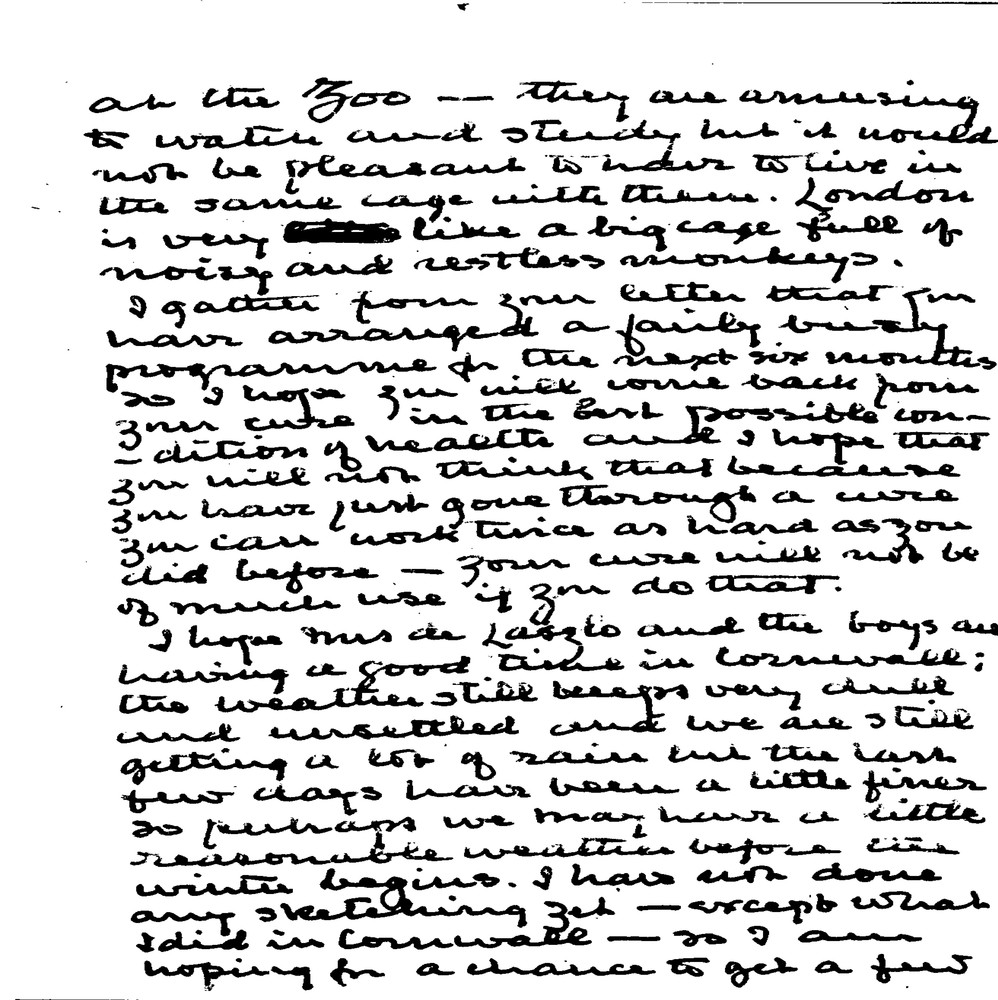 at the Zoo — they are amusing
to watch and study but it would
not be pleasant to have to live in
the same cage with them. London
is very like a big cage full of
noisy and restless monkeys.
I gather from your letter that you
have arranged a fairly busy
programme for the next six months
so I hope you will come back from
your cure in the best possible con-
-dition of health and I hope that
you will not think that because
you have just gone through a cure
you can work twice as hard as you
did before — your cure will not be
of much use if you do that.
I hope Mrs de László and the boys are
having a good time in Cornwall;
the weather still keeps very dull
and unsettled and we are still
getting a lot of rain but the last
few days have been a little finer
so perhaps we may have a little
reasonable weather before the
winter begins. I have not done
any sketching yet — except what
I did in Cornwall — so I am
hoping for a chance to get a few